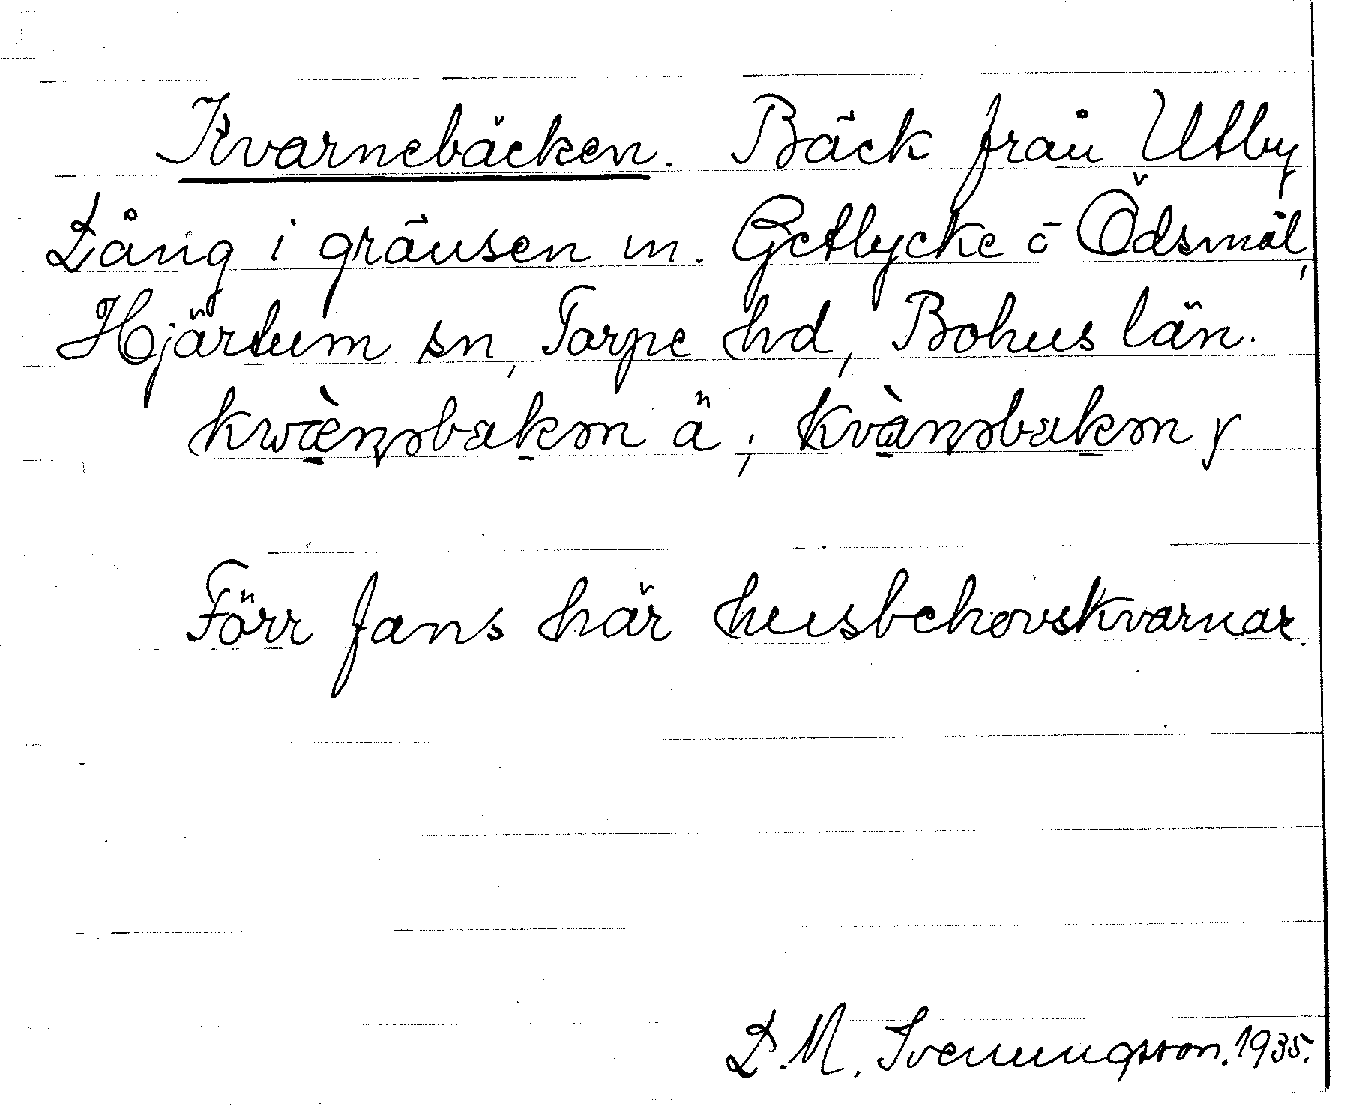 Kvarnebäcken. Bäck från Utby
Lång i gränsen m. Getlycke o Ödsmål,
Hjärtum sn, Torpe hd, Bohus län.
ä; y
Förr fans här husbehovskvarnar.
D. M. Svenungsson. 1935.